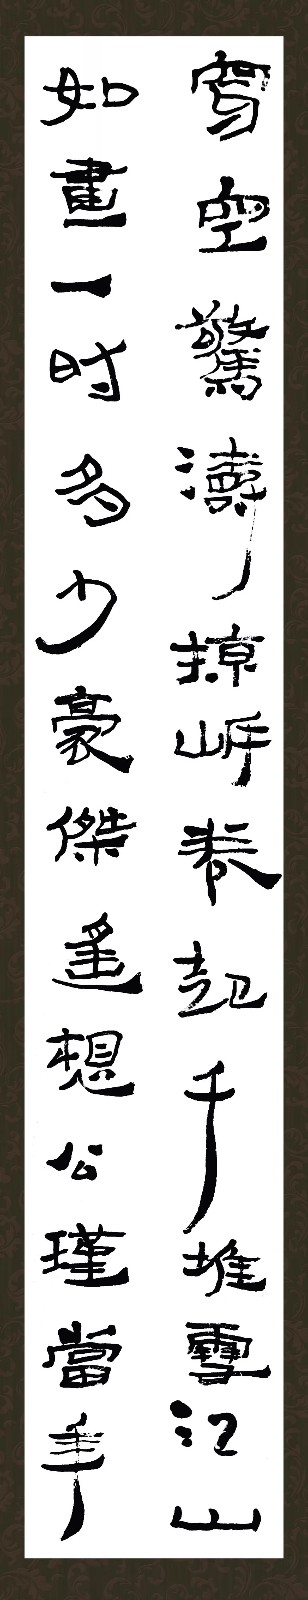 穿空驚濤掠岸卷起千堆雪江山
如畫一时多少豪傑遙想公瑾當年